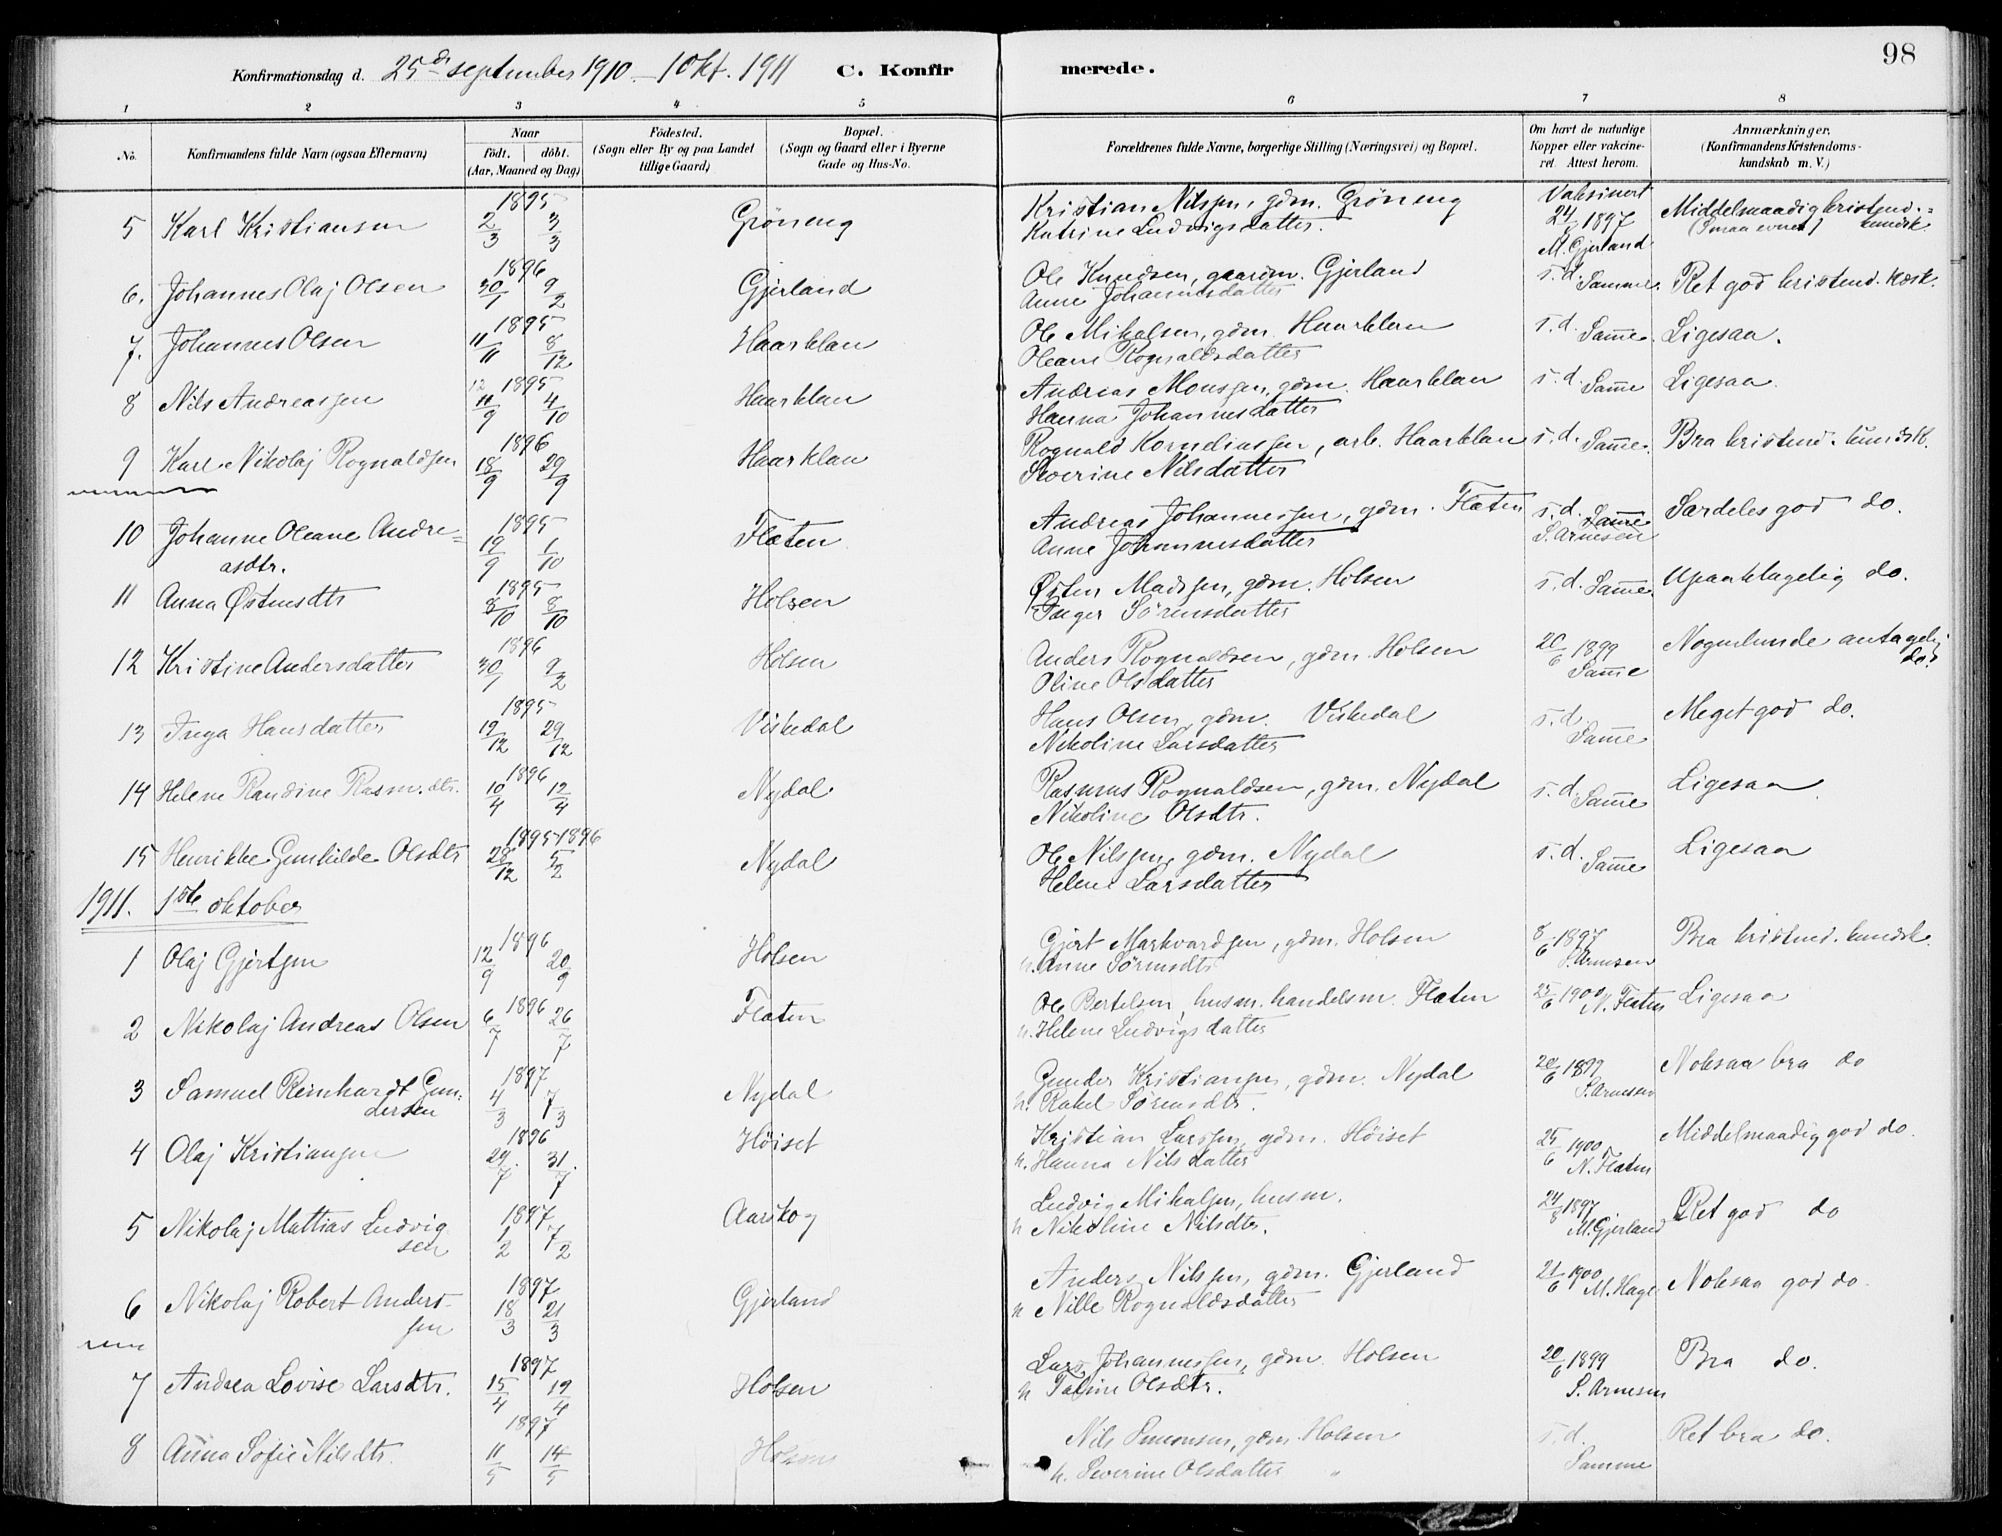 98
Konfirmationsdag d. 25de september 1910 – 1 Okt. 1911 C. Konfirmerede.
1 2 3 4 5 6 7 8
No.
Konfirmandens fulde Navn (ogsaa Efternavn)
Naar
födt. döbt.
(Aar, Maaned og Dag)
Födested.
(Sogn eller By og paa Landet
tillige Gaard)
Bopæl.
(Sogn og Gaard eller i Byerne
Gade og Hus-No.
Forældrenes fulde Navne, borgerlige Stilling (Næringsvei) og Bopæl.
Om havt de naturlige
Kopper eller vakcine-
ret. Attest herom.
Anmærkninger.
(Konfirmandens Kristendoms-
kundskab m. V.)
5 Karl Kristiansen 1895 2/3 3/3 Gröneng Kristian Nilssen, gdm. Gröneng Vaksinert 24 1897 Middelmaadig kristend.=
Katrine Ludvigsdatter. M. Gjerland (Smaa evner) kundsk.
6. Johannes Olaj Olsen 1896 30/1 9/2 Gjerland Ole Knudsen, gaardm. Gjerland s. d. Samme. Ret god kristend. kdsk.
Anne Johannesdatter
7. Johannes Olsen 1895 11/11 8/12 Haarklau Ole Mikalsen, gdm. Haarklau s. d. Samme. Ligesaa.
Oleane Rognaldsdatter
8 Nils Andreassen 12 1895 11/9 4/10 Haarklau Andreas Monssen, gdm. Haarklau s. d. Samme Ligesaa.
Hanna Johannesdatter
9 Karl Nikolaj Rognaldsen 1896 18/9 29/9 Haarklau Rognald Korneliussen, arb. Haarklau s. d. Samme. Bra kristend. kundsk.
Severine Nilsdatter
10 Johanne Oleane Andre= 1895 19/9 1/10 Flaten Andreas Johannessen, gdm. Flaten s. d. Samme Særdeles god do.
asdtr. Anne Johannesdatter S. Arnesen
11 Anna Østensdtr 1895 8/10 8/10 Holsen Østen Madssen, gdm. Holsen s. d. Samme. Upaaklagelig do.
Inger Sörensdatter
12 Kristine Andersdatter 1896 30/1 9/2 Holsen Anders Rognaldsen, gdm. Holsen 20/6 1899 Nogenlunde antagelig
Oline Olsdatter Samme do.
13 Inga Hansdatter 1895 19/12 29/12 Viskedal Hans Olsen, gdm. Viskedal s. d. Meget god do.
Nikoline Larsdatter Samme
14 Helene Randine Rasm.dtr. 1896 10/4 12/4 Nydal Rasmus Rognaldsen, gdm. Nydal s. d. Samme Ligesaa
Nikoline Olsdtr.
15 Henrikke Gunhilde Olsdtr 1895 1896 28/12 5/2 Nydal Ole Nilssen, gdm. Nydal s. d. Samme Ligesaa
Helene Larsdatter
1911. 1ste oktober
1 Olaj Gjertsen 1896 12/9 20/9 Holsen Gjert Markvardsen, gdm. Holsen 8/6 1897 Bra kristend. kundsk.
h. Anne Sörensdtr S. Arnesen
2 Nikolaj Andreas Olsen 1896 6/7 26/7 Flaten Ole Bertelsen, husm. handelsm. Flaten 25/6 1900 N. Flaten Ligesaa
h. Helene Ludvigsdatter
3 Samuel Reinhardt Gun- 1897 4/3 7/3 Nydal Gunder Kristiansen, gdm. Nydal 20/6 1899 Noksaa bra do
dersen h. Rakel Sörensdtr. S. Arnesen
4 Olaj Kristiansen 1896 29/7 31/7 Höiset Kristian Larssen, gdm. Höiset 25/6 1900 Middelmaadig god do.
h. Hanna Nilsdatter N. Flaten
5 Nikolaj Mattias Ludvig 1897 1/2 7/2 Aarskog Ludvig Mikalsen, husm. 24/8 1897 Ret god do
sen h Nikoline Nilsdtr. M. Gjerland
6 Nikolaj Robert Anders- 1897 18/3 21/3 Gjerland Anders Nilssen, gdm. Gjerland 21/6 1900 Noksaa god do.
sen h Nille Rognaldsdatter M. Hage
7 Andrea Lovise Larsdtr. 1897 15/4 19/4 Holsen Lars Johannessen, gdm. Holsen 20/6 1899 Bra do.
h Taline Olsdtr. S. Arnesen
8 Anna Sofie Nilsdtr. 1897 11/5 14/5 Holsen Nils Simonsen, gdm. Holsen s. d. Ret bra do.
h. Severine Olsdatter " Samme